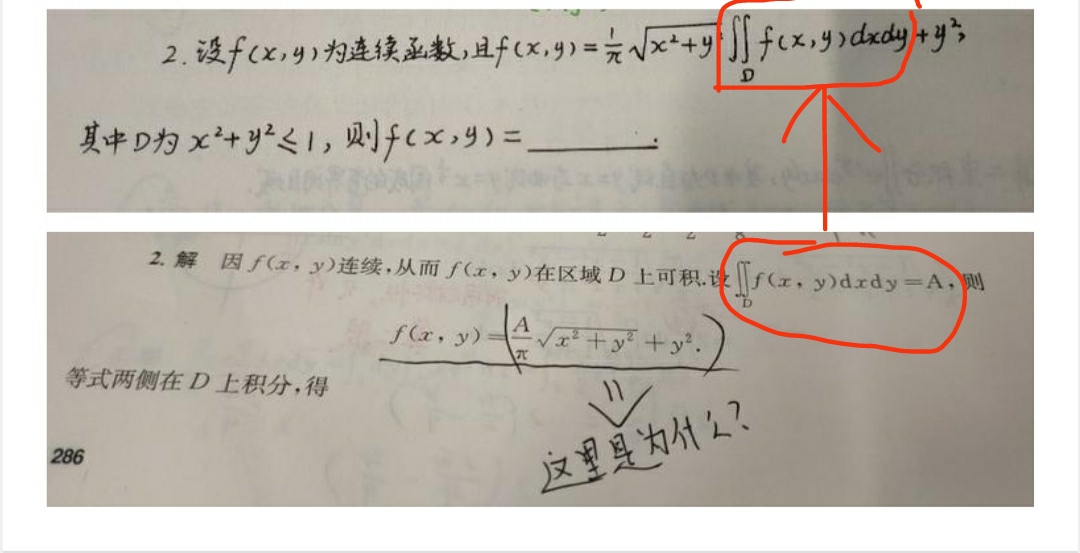 2. 设f(x,y)为连续函数,且f(x,y)=1/π √(x²+y²) ∬_D f(x,y)dxdy+y²,
其中D为 x²+y²≤1, 则f(x,y)=______.
2. 解 因 f(x, y)连续,从而 f(x, y)在区域 D 上可积.设∬_D f(x, y)dxdy=A,则
f(x, y)=A/π √(x²+y²)+y².
等式两侧在 D 上积分,得
这里是为什么?
286